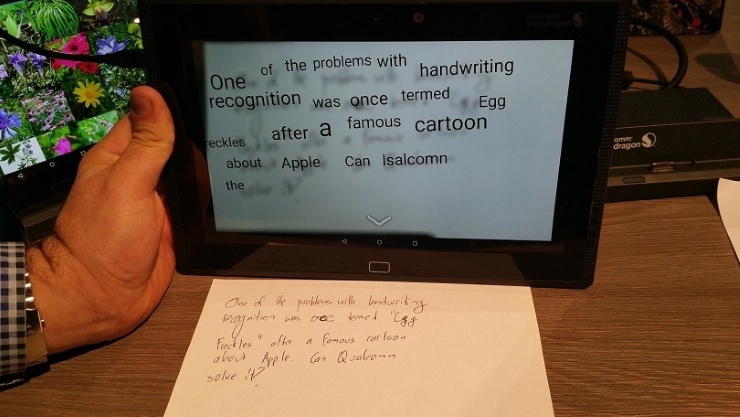 One of the problems with handwriting
recognition was once termed Egg
reckles after a famous cartoon
about Apple Can Isalcomn
the
snapdragon
omm
dragon
One of the problems with handwriting
recognition was once termed "Egg
Freckles" after a famous cartoon
about Apple. Can Qualcomm
solve it?